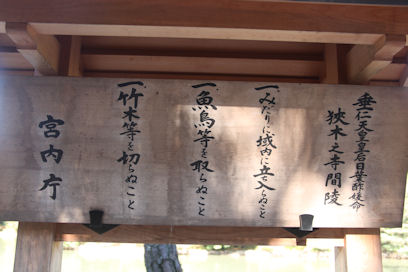 垂仁天皇皇后日葉酢媛命
狭木之寺間陵
一みだりに域内に立入らぬこと
一魚鳥等を取らぬこと
一竹木等を切らぬこと
宮内庁